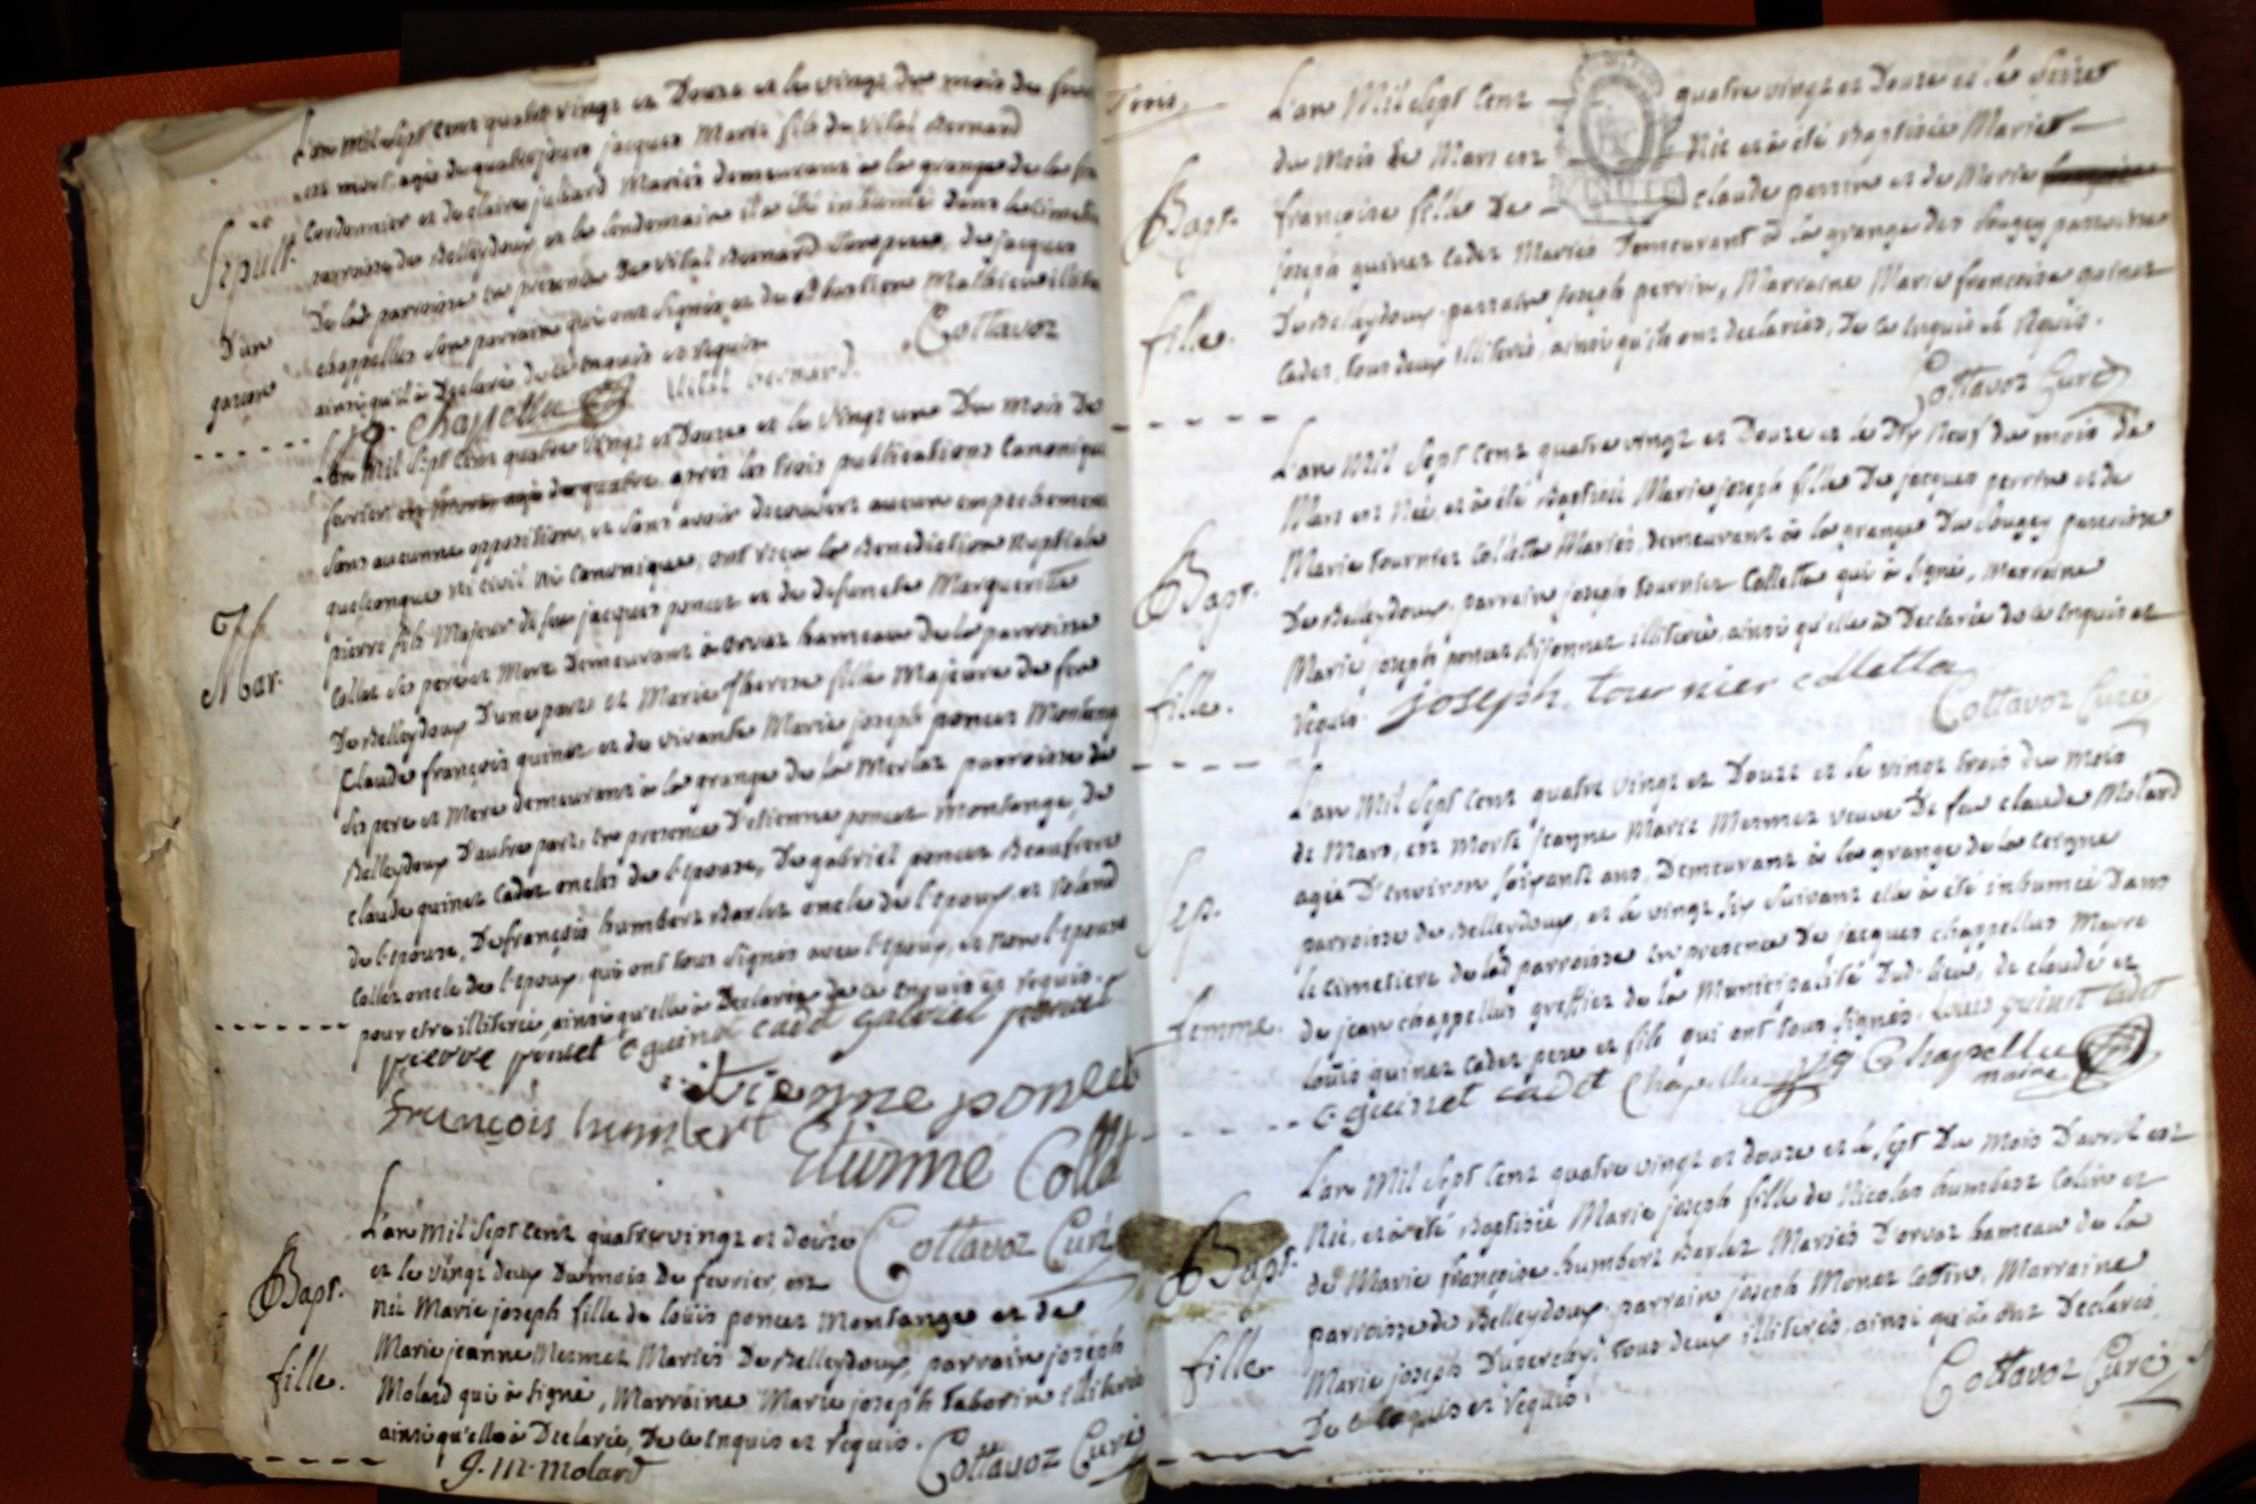 L'an Mil Sept Cent quatre vingt et Douze et le vingt du mois de
est mort, agé de quatre jours jacques Marie fils de Vital Bernard
Cordonnier et de claire juliard Mariés demeurant à la grange de la
parroisse de Belleydoux, et le lendemain il a été inhumé dans le Cimetiere
De lad parroisse en presence de Vital Bernard Son pere, de jacques
chappellus Son parrain qui ont signés, et de Mathieu
ainsi qu'il à Declaré de ce enquis et requis
Cottavoz
Chapellu Vital bernard.
Sepult.
D'un
garcon
L'an Mil Sept Cent quatre vingt et Douze et le Vingt un Du mois De
fevrier est Mort agé de quatre après les trois publications Canoniques
Sans aucunne opposition, et Sans avoir decouvert aucun empechement
quelconque ni civil ni Canonique, ont reçu la Benediction Nuptiale
pierre fils Majeur de feu jacques poncet et de defuncte Marguerite
Collet Ses pere et Mere Demeurant à orvaz hameau de la parroisse
De Belleydoux D'une part et Marie therese fille Majeure de feu
Claude françois guinet et de vivante Marie joseph poncet Montange
Ses pere et Mere demeurant à la grange de la Merlaz parroisse de
Belleydoux D'autre part, en presence D'etienne poncet montange, de
claude guinet Cadet oncles de l'epouse, De gabriel poncet Beaufrere
de l'epouse, De françois humbert Barlet oncle de l'epoux, et Roland
Collet oncle de l'epoux, qui ont tous Signés avec l'epoux, et non l'epouse
pour etre illiterée, ainsi qu'elle à Declarée de ce enquis et requis.
Mar.
pierre poncet c guinet cadet gabriel poncet
Etienne poncet
françois humbert Etienne Collet
L'an Mil Sept Cent quatre vingt et Douze Cottavoz Curé
et le vingt deux Du mois de fevrier, est
Née Marie joseph fille de louis poncet Montange et de
Marie jeanne Mermet Mariés De Belleydoux, parrain joseph
Molard qui à Signé, Marraine Marie joseph taborin illiterée
ainsi qu'elle à Declarée, De ce enquis et requis.
J. m. molard Cottavoz Curé
Bapt.
fille.
Trois
L'an Mil Sept Cent quatre vingt et Douze et le Seize
du Mois de Mars est Née et à été Baptisée Marie
françoise fille De claude perrin et de Marie
joseph guinet Cadet Mariés Demeurant à la grange des Sougey parroisse
De Belleydoux, parrain joseph perrin, Marraine Marie françoise guinet
Cadet, tous deux illiterés, ainsi qu'ils ont declarés, De ce enquis et requis.
Cottavoz Curé
Bapt.
fille.
L'an Mil Sept Cent quatre vingt et Douze et le Dix Neuf du mois de
Mars est Née, et à été Baptisée Marie joseph fille De jacques perrin et de
Marie tournier Colletta Mariés, Demeurant à la grange Du Sougey parroisse
De Belleydoux, parrain joseph tournier Colletta qui à Signé, Marraine
Marie joseph poncet Bijonnet illiterée, ainsi qu'elle à Declarée de ce enquis et
requis. joseph tournier colletta
Cottavoz Curé
Bapt.
fille.
L'an Mil Sept Cent quatre vingt et Douze et le vingt trois du mois
de Mars, est morte jeanne Marie Mermet veuve De feu claude Molard
agée D'environ Soixante ans, Demeurant à la grange de la
parroisse de Belleydoux, et le vingt Six Suivant elle à été inhumée Dans
le Cimetiere de lad parroisse en presence De jacques chappellus Mayre
de jean chappellus greffier de la Municipalité Dud. lieu, de claude et
louis guinet Cadet pere et fils qui ont tous Signés. Louis guinet cadet
c guinet cadet Chapellu J Chapellu
maire
Sep.
femme.
L'an Mil Sept Cent quatre vingt et douze et le Sept Du Mois D'avril est
Née, et à été Baptisée Marie joseph fille de Nicolas humbert Colin et
de Marie françoise humbert Barlet Mariés D'orvaz hameau de la
parroisse de Belleydoux, parrain joseph Monet Cottin, Marraine
Marie joseph Duperchy, tous deux illiterés, ainsi qu'ils ont Declarés
De ce enquis et requis.
Cottavoz Curé
Bapt.
fille